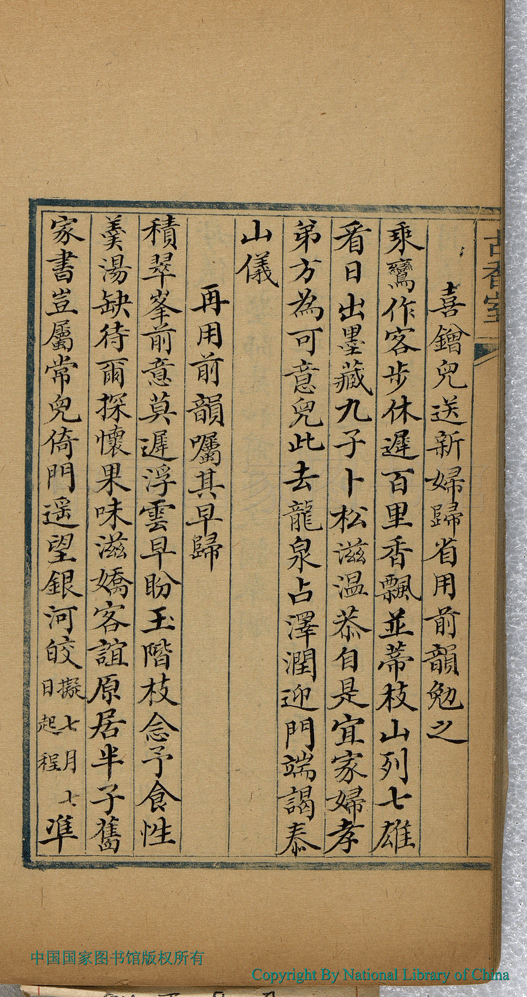 古香室
喜鐺兒送新婦歸省用前韻勉之
乘鸞作客步休遲百里香飄並蒂枝山列七雄
看日出墨藏九子卜松滋温恭自是宜家婦孝
弟方為可意兒此去龍泉占澤潤迎門端謁泰
山儀
再用前韻囑其早歸
積翠峯前意莫遲浮雲早盼玉階枝念予食性
羹湯缺待爾探懷果味滋嬌客誼原居半子舊
家書豈屬常兒倚門遥望銀河皎擬七月七日起程準
中国国家图书馆版权所有
Copyright By National Library of China